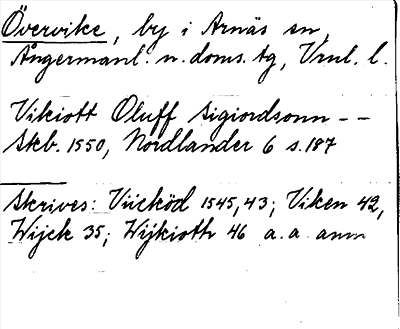 Övervike, by i Arnäs sn,
Ångermanl. n. doms. tg, Vrnl. l.
Vikiott Oluff Sigiordsonn - -
Skb. 1550, Nordlander 6 s. 187
Skrives: Viickód 1545, 43; Viken 42,
Wijck 35; Wijkioth 46 a. a. anm